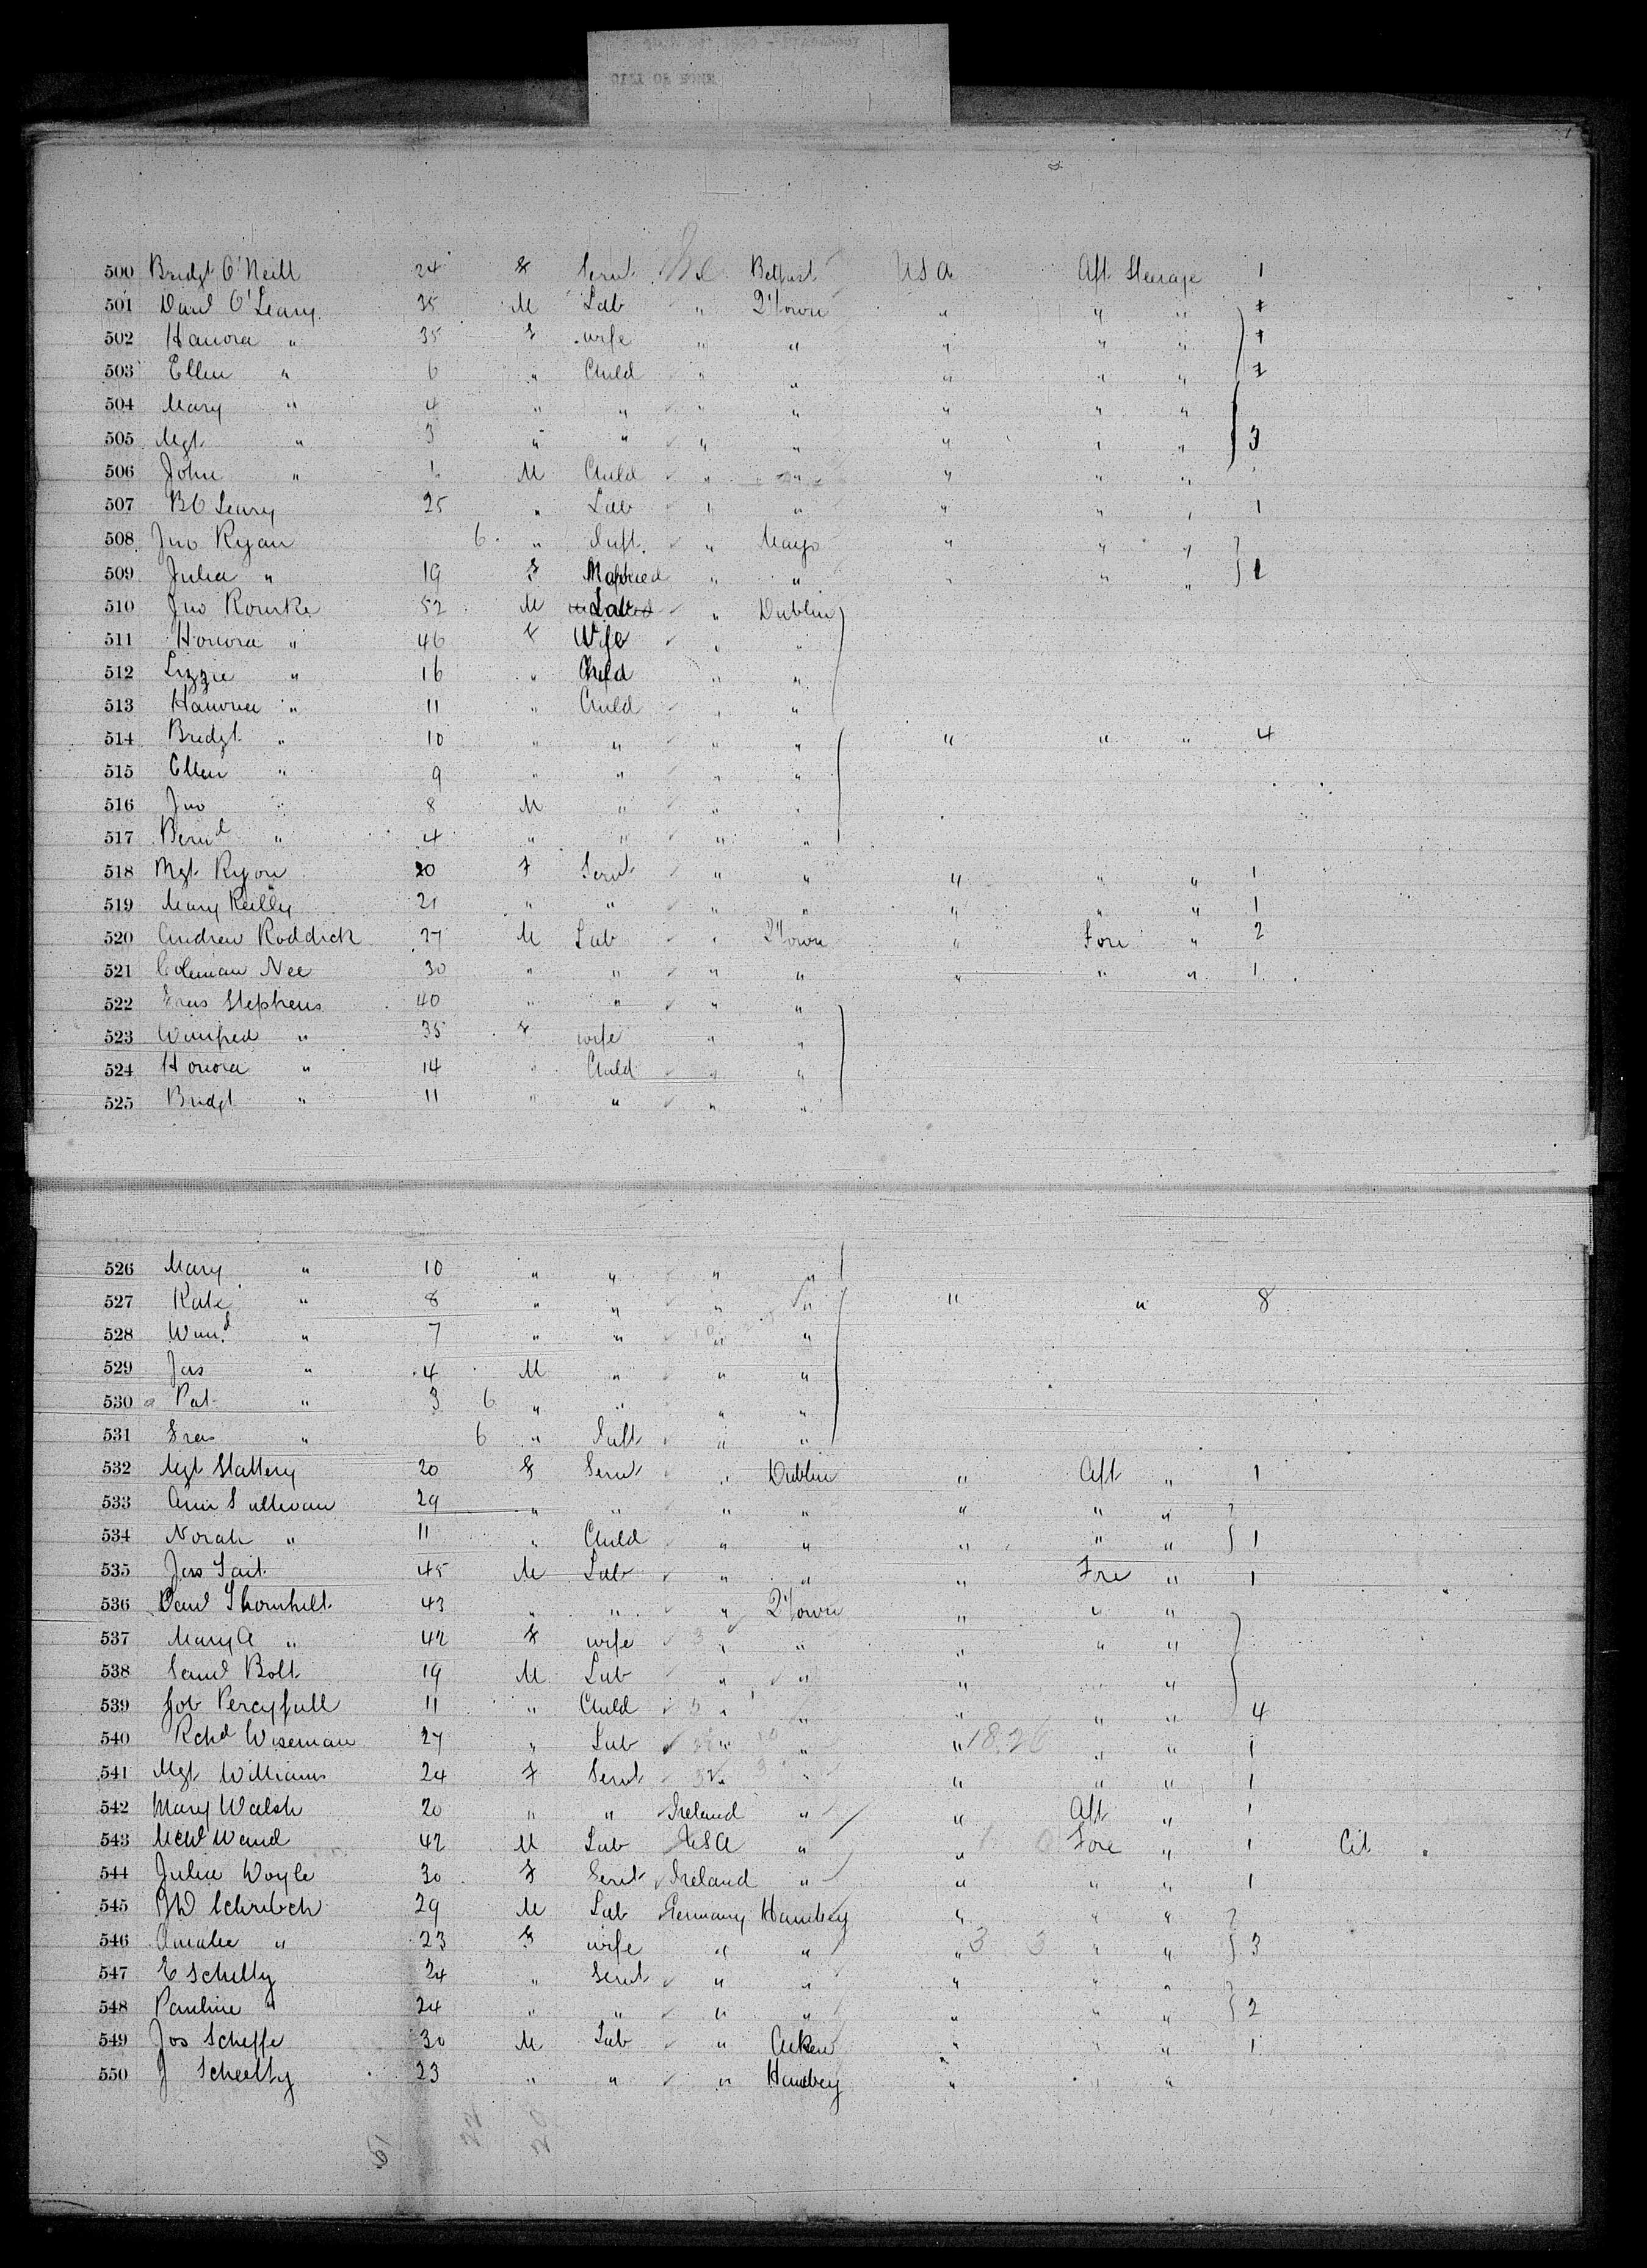 CITY OF ROME
500 Bridgt O'Neill 24 F Servt Ire Belfast USA Aft Steerage 1
501 Danl O'Leary 35 M Lab " Q'town " " " 1
502 Hanora " 35 F wife " " " " " 1
503 Ellen " 6 " Child " " " " " 1
504 Mary " 4 " " " " " " "
505 Mgt " 3 " " " " " " " 3
506 John " M Child " " " " "
507 B O Leary 25 " Lab " " " " " 1
508 Jno Ryan 6 " Inft " Mayo " " "
509 Julia " 19 F Married " " " " " 1
510 Jno Rourke 52 M Lab " Dublin
511 Honora " 46 F Wife " "
512 Lizzie " 16 " Child " "
513 Hanora " 11 " Child " "
514 Bridgt " 10 " " " " " " " 4
515 Ellen " 9 " " " "
516 Jno " 8 M " " "
517 Bernd " 4 " " " "
518 Mgt Ryan 20 F Servt " " " " " 1
519 Mary Reilly 21 " " " " " " " 1
520 Andrew Roddick 27 M Lab " Q'town " Fore " 2
521 Coleman Nee 30 " " " " " " " 1
522 Fras Stephens 40 " " " "
523 Winifred " 35 F wife " "
524 Honora " 14 " Child " "
525 Bridgt " 11 " " " "
526 Mary " 10 " " " "
527 Kate " 8 " " " " " " 8
528 Wind " 7 " " " "
529 Jas " 4 M " " "
530 Pat " 3 6 " " " "
531 Fras " 6 " Inft " "
532 Mgt Slattery 20 F Servt " Dublin " Aft " 1
533 Ann Sullivan 29 " " " " " " "
534 Norah " 11 " Child " " " " " 1
535 Jas Tait 45 M Lab " " " Fre " 1
536 Danl Thornhill 43 " " " Q'town " " "
537 Mary A " 42 F wife " " " " "
538 Saml Bolt 19 M Lab " " " " "
539 Job Percyfull 11 " Child " " " " " 4
540 Richd Wiseman 27 " Lab " " " 1826 " " 1
541 Mgt Williams 24 F Servt " " " " " 1
542 Mary Walsh 20 " " Ireland " " Aft " 1
543 Mchl Wand 42 M Lab USA " " Fore " 1 Cit
544 Julia Woyle 30 F Servt Ireland " " " " 1
545 29 M Lab Germany Hamburg " " "
546 Amalie " 23 F wife " " " 3 3 " " 3
547 E Schelly 24 " Servt " " " " "
548 Pauline " 24 " " " " " " " 2
549 Jos Scheffe 30 M Lab " " " " 1
550 J 23 " " " Hamburg " " "